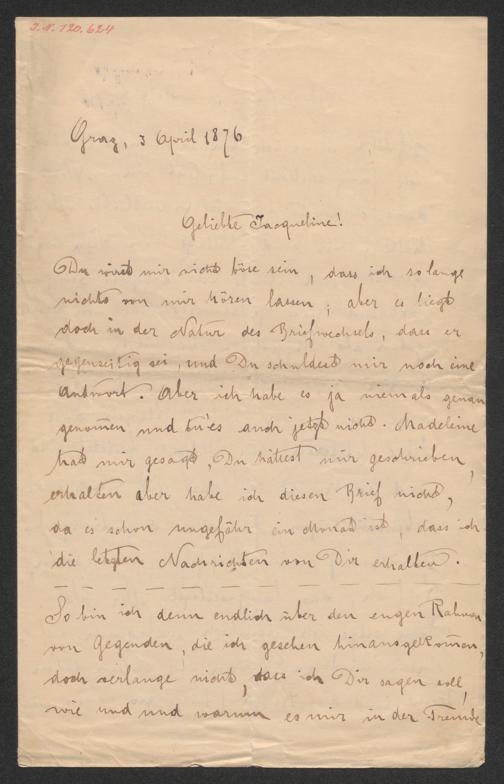 I.N. 120.624
Graz, 3 April 1876
Geliebte Jacqueline!
Du wirst mir nicht böse sein, dass ich so lange
nichts von mir hören lassen; aber es liegt
doch in der Natur des Briefwechsels, dass er
gegenseitig sei, und Du schuldest mir noch eine
Antwort. Aber ich habe es ja niemals genau
genom̄en und tu'es auch jetzt nicht. Madeleine
hat mir gesagt, Du hättest mir geschrieben,
erhalten aber habe ich diesen Brief nicht,
da es schon ungefähr ein Monat ist, dass ich
die letzten Nachrichten von Dir erhalten.
So bin ich denn endlich über den engen Rahmen
von Gegenden, die ich gesehen hinausgekom̄en,
doch verlange nicht, dass ich Dir sagen soll,
wie und und warum es mir in der Fremde